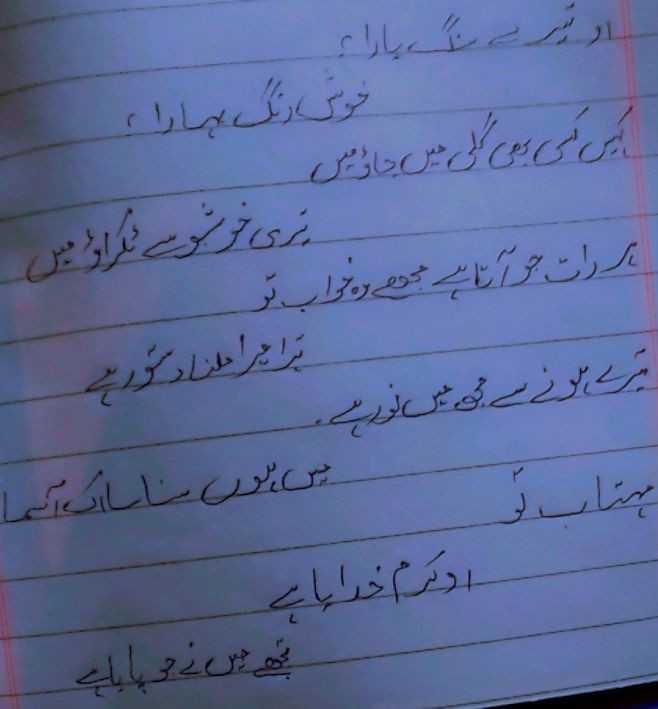 او تیرے سنگ یارا ؛
خوش رنگ بہارا ؛
کہیں کسی بھی گلی میں جاؤ میں
تیری خوشبو سے ٹکراؤ میں
ہر رات جو آتا ہے مجھے وہ خواب تو
تیرا میرا ملنا دستور ہے
تیرے ہونے سے مجھ میں نور ہے .
میں ہوں سنا سا اک آسما
مہتاب تو
او کرم خدایا ہے
تجھے میں نے جو پایا ہے